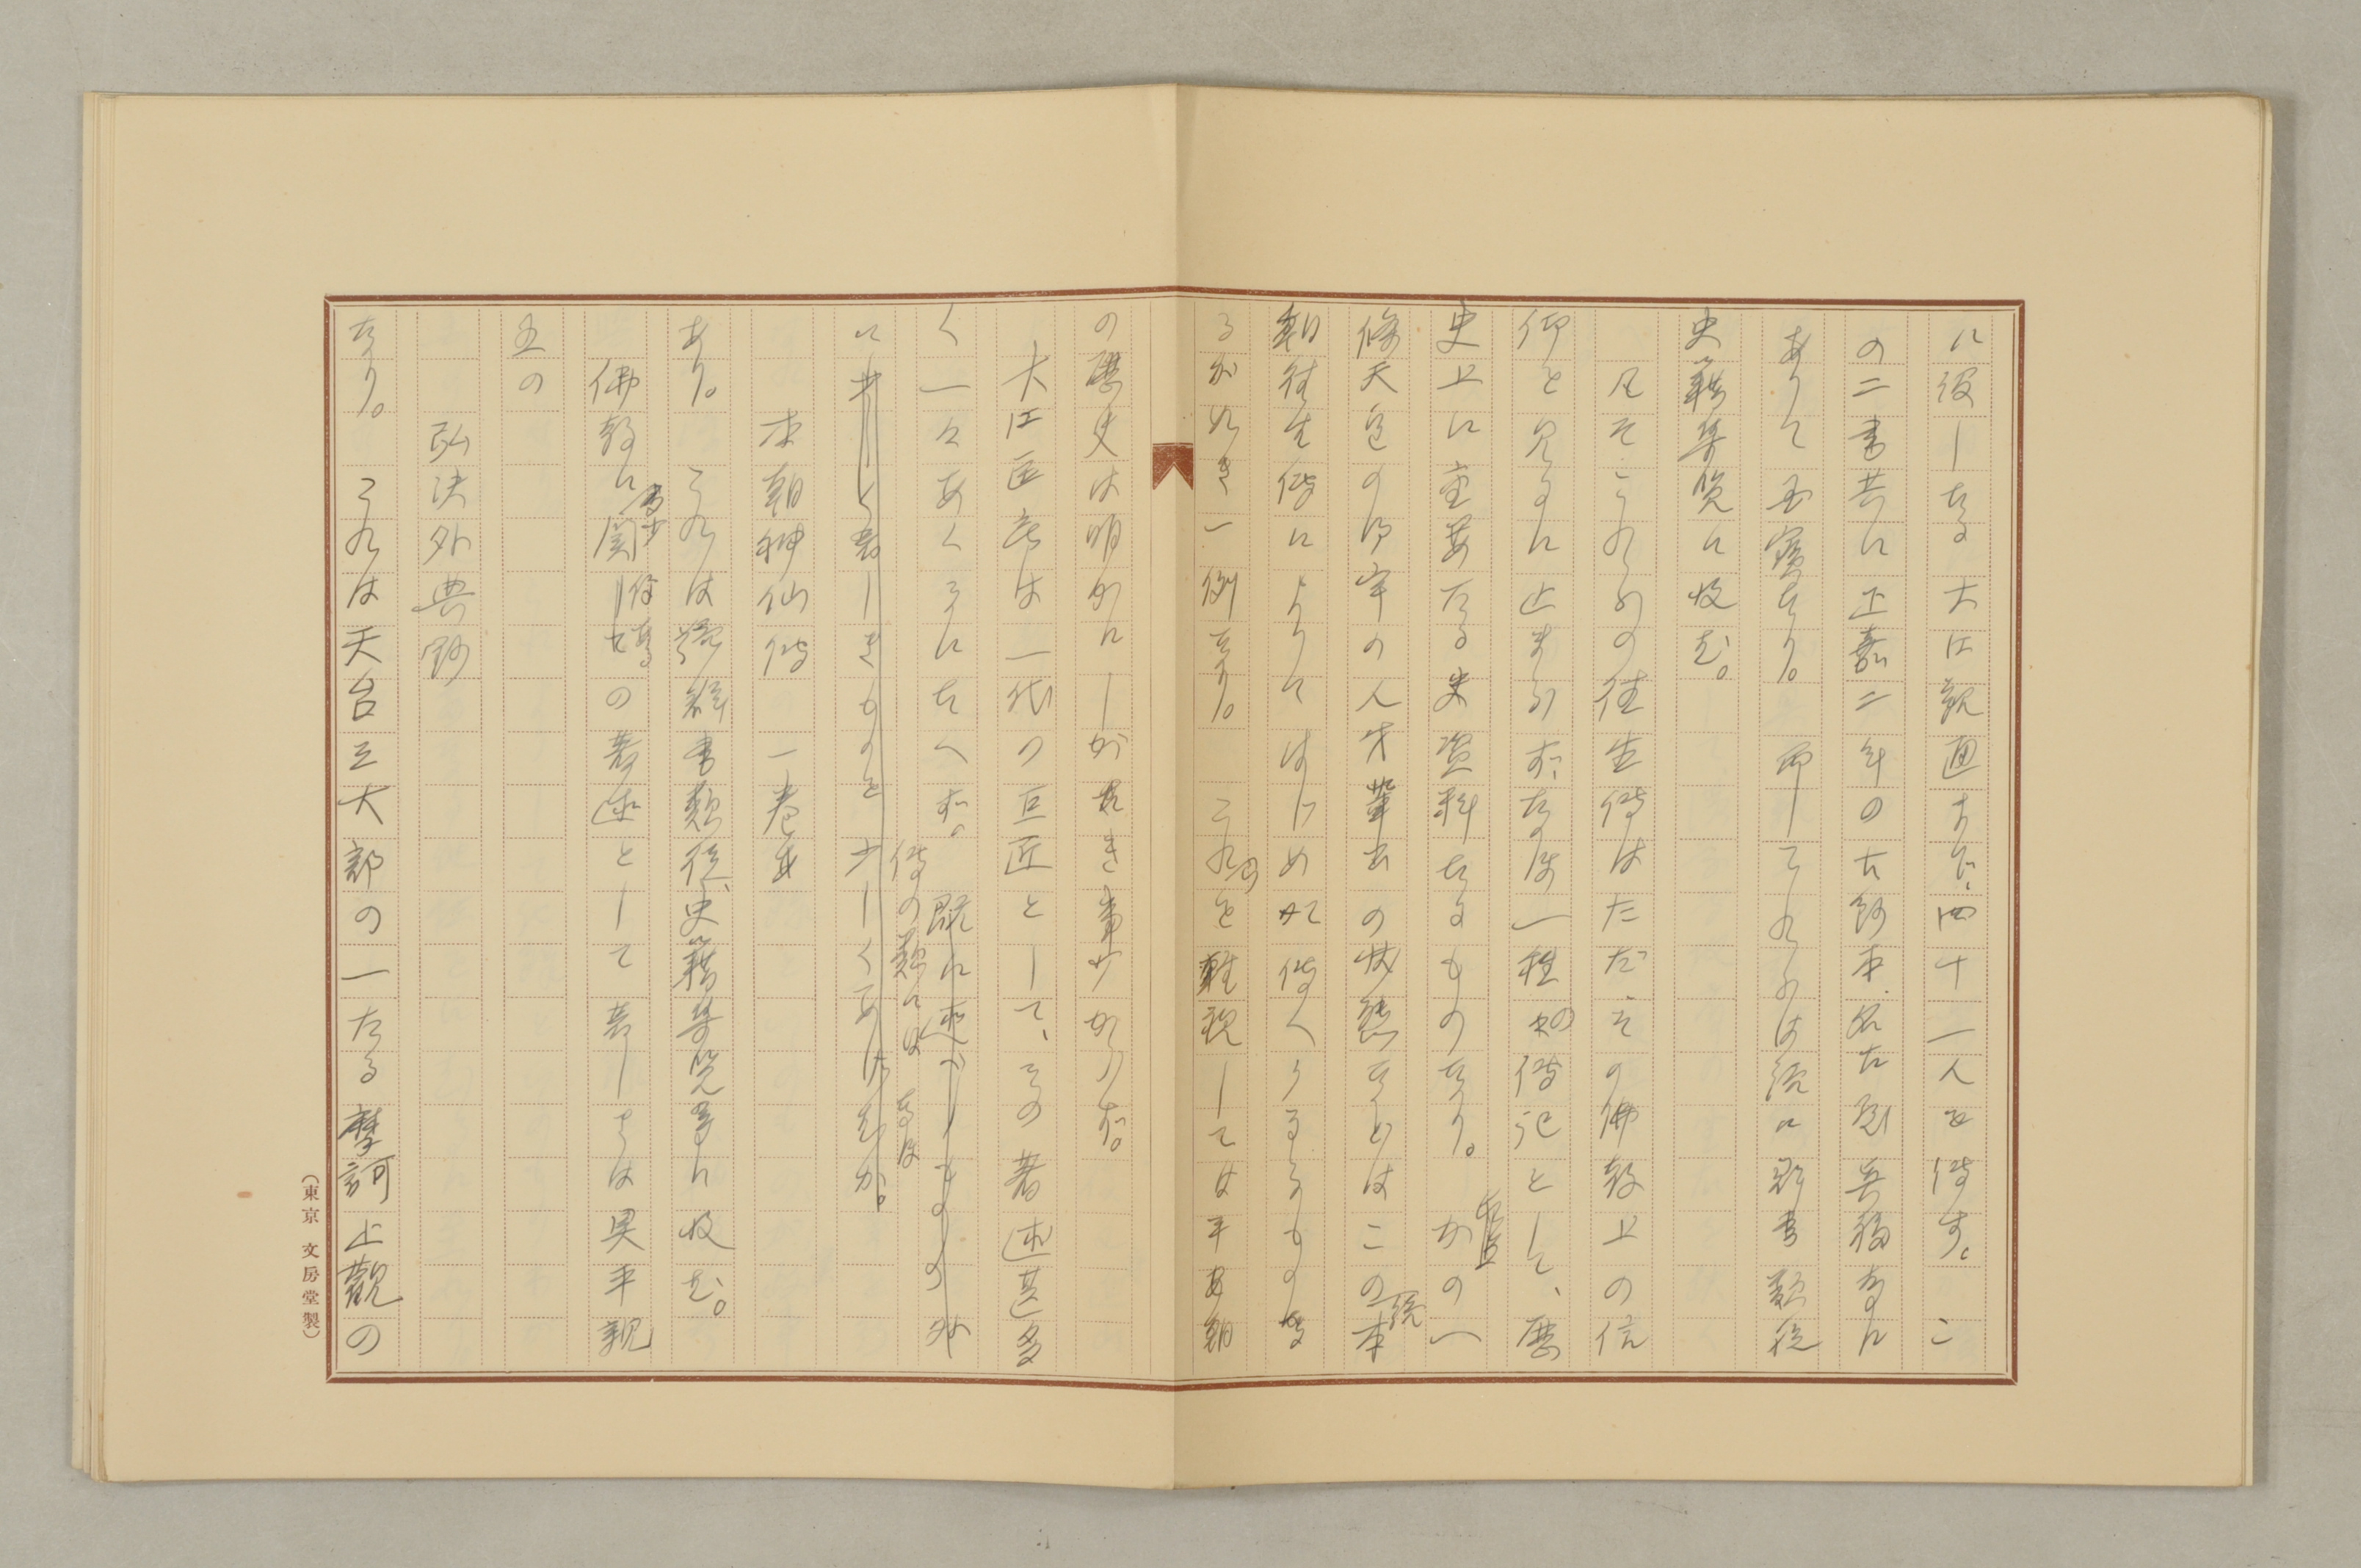 に役したる大江親通まで、四十一人を伝す。こ
の二書共に正嘉二年の古鈔本
ありて国宝なり。而してこれらは続に群書類従
史籍集覧に収む。
凡そこれらの往生伝はただその佛教上の信
仰と見るに止まらず、なほ一種の伝記として、歴
史上に重要なる史資料たるものなり。かの一
條天皇の御宇の人才輩出の状態などはこの続本
朝往生伝によりてはじめて伝へうるもの
るが如き一例なり。これのを軽視しては平安朝
の歴史は明かにしがたき事少からず。
大江匡房は一代の巨匠として、その著述甚多
く一々あぐるにたへず。既に述べしものの外
伝の類には なほ
本朝神仙伝 一巻
あり。これは続群書類従、史籍集覧等に収む。
佛教に関係せるの著述として著しきは具平親
王の
弘決外典鈔
なり。これは天台三大部の一たる摩訶止観の
(東京 文房堂製)